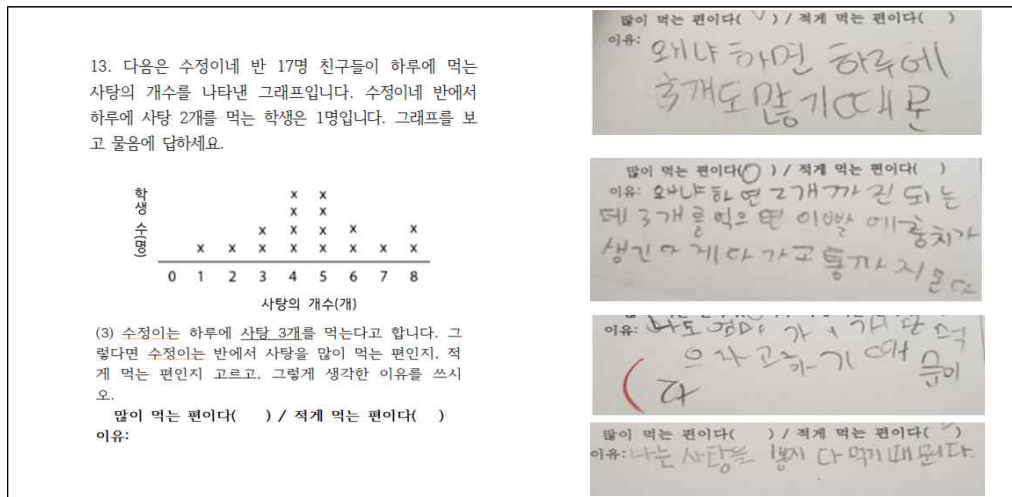 13. 다음은 수정이네 반 17명 친구들이 하루에 먹는
사탕의 개수를 나타낸 그래프입니다. 수정이네 반에서
하루에 사탕 2개를 먹는 학생은 1명입니다. 그래프를 보
고 물음에 답하세요.
학생 수(명)
0 1 2 3 4 5 6 7 8
사탕의 개수(개)
(3) 수정이는 하루에 사탕 3개를 먹는다고 합니다. 그
렇다면 수정이는 반에서 사탕을 많이 먹는 편인지, 적
게 먹는 편인지 고르고, 그렇게 생각한 이유를 쓰시
오.
많이 먹는 편이다( ) / 적게 먹는 편이다( )
이유:
많이 먹는 편이다( ) / 적게 먹는 편이다( )
이유: 왜냐하면 하루에
3개도 많기 때문
많이 먹는 편이다( ) / 적게 먹는 편이다( )
이유: 왜냐하면 2개까진 되는
데 3개를 먹으면 이빨에 충치가
생긴다 게다가 고통까지 온다
이유: 나도 엄마가
고 하기 때문이
다
많이 먹는 편이다( ) / 적게 먹는 편이다( )
이유: 나는 사탕을 1봉지 다 먹기 때문이다.